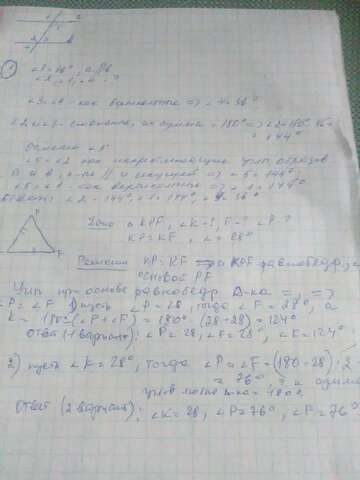 a
2 в
∠3 = 36°, a || в
∠2 - ?, ∠1 - ?, ∠4 - ?
∠3 = ∠4 - как вертикальные => ∠4 = 36°
∠2 и ∠3 - смежные, их сумма = 180° => ∠2 = 180° - 36° =
= 144°
∠5 = ∠2 как
a и в и секущей => ∠5 = 144°,
∠5 = ∠1 - как вертикальные => ∠1 = 144°
Ответ: ∠2 = 144°, ∠1 = 144°, ∠4 = 36°
P
K F
Дано Δ KPF, ∠K - ?, F - ? ∠P - ?
KP = KF, ∠ = 28°
Решение KP = KF => Δ KPF равнобедр. с
основой PF
Углы при основе равнобедр. Δ-ка =, =>
∠P = ∠F Пусть ∠P = 28°, тогда ∠F = 28°, а
K = 180 - (∠P + ∠F) = 180° - (28 + 28) = 124°
Ответ (1 вариант): ∠P = 28, ∠F = 28°, ∠K = 124°
2) пусть ∠K = 28°, тогда ∠P = ∠F = (180 - 28) : 2 =
= 76°, т.к. сумма
углов Δ-ка = 180°
Ответ (2 вариант): ∠K = 28, ∠P = 76°, ∠F = 76°